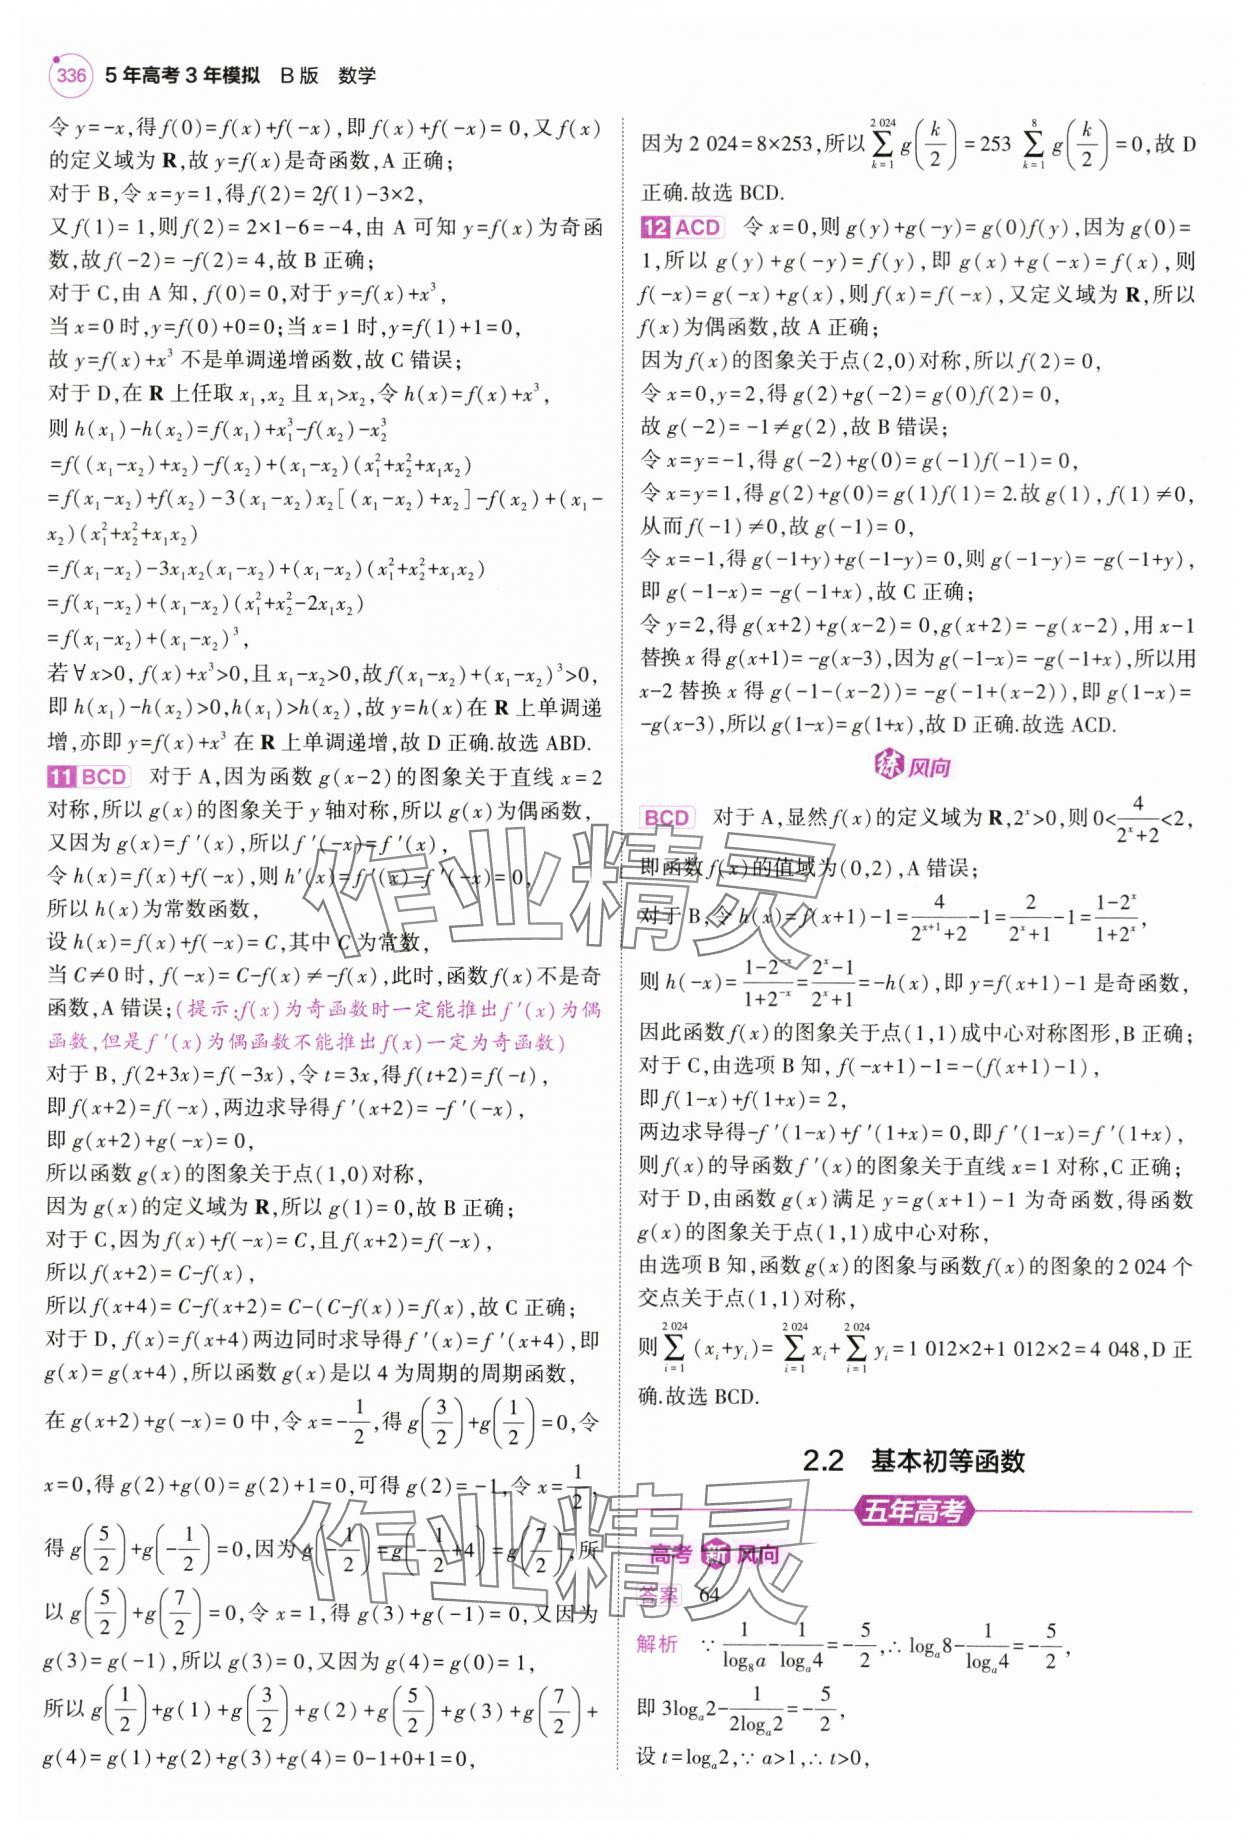 336 5年高考3年模拟 B版 数学
令y=-x,得f(0)=f(x)+f(-x),即f(x)+f(-x)=0,又f(x)
的定义域为R,故y=f(x)是奇函数,A正确;
对于B,令x=y=1,得f(2)=2f(1)-3×2,
又f(1)=1,则f(2)=2×1-6=-4,由A可知y=f(x)为奇函
数,故f(-2)=-f(2)=4,故B正确;
对于C,由A知,f(0)=0,对于y=f(x)+x³,
当x=0时,y=f(0)+0=0;当x=1时,y=f(1)+1=0,
故y=f(x)+x³不是单调递增函数,故C错误;
对于D,在R上任取x₁,x₂且x₁>x₂,令h(x)=f(x)+x³,
则h(x₁)-h(x₂)=f(x₁)+x₁³-f(x₂)-x₂³
=f((x₁-x₂)+x₂)-f(x₂)+(x₁-x₂)(x₁²+x₂²+x₁x₂)
=f(x₁-x₂)+f(x₂)-3(x₁-x₂)x₂[(x₁-x₂)+x₂]-f(x₂)+(x₁-
x₂)(x₁²+x₂²+x₁x₂)
=f(x₁-x₂)-3x₁x₂(x₁-x₂)+(x₁-x₂)(x₁²+x₂²+x₁x₂)
=f(x₁-x₂)+(x₁-x₂)(x₁²+x₂²-2x₁x₂)
=f(x₁-x₂)+(x₁-x₂)³,
若∀x>0,f(x)+x³>0,且x₁-x₂>0,故f(x₁-x₂)+(x₁-x₂)³>0,
即h(x₁)-h(x₂)>0,h(x₁)>h(x₂),故y=h(x)在R上单调递
增,亦即y=f(x)+x³在R上单调递增,故D正确.故选ABD.
11 BCD 对于A,因为函数g(x-2)的图象关于直线x=2
对称,所以g(x)的图象关于y轴对称,所以g(x)为偶函数,
又因为g(x)=f′(x),所以f′(-x)=f′(x),
令h(x)=f(x)+f(-x),则h′(x)=f′(x)-f′(-x)=0,
所以h(x)为常数函数,
设h(x)=f(x)+f(-x)=C,其中C为常数,
当C≠0时,f(-x)=C-f(x)≠-f(x),此时,函数f(x)不是奇
函数,A错误;(提示:f(x)为奇函数时一定能推出f′(x)为偶
函数,但是f′(x)为偶函数不能推出f(x)一定为奇函数)
对于B,f(2+3x)=f(-3x),令t=3x,得f(t+2)=f(-t),
即f(x+2)=f(-x),两边求导得f′(x+2)=-f′(-x),
即g(x+2)+g(-x)=0,
所以函数g(x)的图象关于点(1,0)对称,
因为g(x)的定义域为R,所以g(1)=0,故B正确;
对于C,因为f(x)+f(-x)=C,且f(x+2)=f(-x),
所以f(x+2)=C-f(x),
所以f(x+4)=C-f(x+2)=C-(C-f(x))=f(x),故C正确;
对于D,f(x)=f(x+4)两边同时求导得f′(x)=f′(x+4),即
g(x)=g(x+4),所以函数g(x)是以4为周期的周期函数,
在g(x+2)+g(-x)=0中,令x=-1/2,得g(3/2)+g(1/2)=0,令
x=0,得g(2)+g(0)=g(2)+1=0,可得g(2)=-1,令x=1/2,
得g(5/2)+g(-1/2)=0,因为g(-1/2)=g(-1/2+4)=g(7/2),所
以g(5/2)+g(7/2)=0,令x=1,得g(3)+g(-1)=0,又因为
g(3)=g(-1),所以g(3)=0,又因为g(4)=g(0)=1,
所以g(1/2)+g(1)+g(3/2)+g(2)+g(5/2)+g(3)+g(7/2)+
g(4)=g(1)+g(2)+g(3)+g(4)=0-1+0+1=0,
因为2 024=8×253,所以∑(k=1→2 024) g(k/2)=253 ∑(k=1→8) g(k/2)=0,故D
正确.故选BCD.
12 ACD 令x=0,则g(y)+g(-y)=g(0)f(y),因为g(0)=
1,所以g(y)+g(-y)=f(y),即g(x)+g(-x)=f(x),则
f(-x)=g(-x)+g(x),则f(x)=f(-x),又定义域为R,所以
f(x)为偶函数,故A正确;
因为f(x)的图象关于点(2,0)对称,所以f(2)=0,
令x=0,y=2,得g(2)+g(-2)=g(0)f(2)=0,
故g(-2)=-1≠g(2),故B错误;
令x=y=-1,得g(-2)+g(0)=g(-1)f(-1)=0,
令x=y=1,得g(2)+g(0)=g(1)f(1)=2.故g(1),f(1)≠0,
从而f(-1)≠0,故g(-1)=0,
令x=-1,得g(-1+y)+g(-1-y)=0,则g(-1-y)=-g(-1+y),
即g(-1-x)=-g(-1+x),故C正确;
令y=2,得g(x+2)+g(x-2)=0,g(x+2)=-g(x-2),用x-1
替换x得g(x+1)=-g(x-3),因为g(-1-x)=-g(-1+x),所以用
x-2替换x得g(-1-(x-2))=-g(-1+(x-2)),即g(1-x)=
-g(x-3),所以g(1-x)=g(1+x),故D正确.故选ACD.
练风向
BCD 对于A,显然f(x)的定义域为R,2ˣ>0,则0<4/(2ˣ+2)<2,
即函数f(x)的值域为(0,2),A错误;
对于B,令h(x)=f(x+1)-1=4/(2ˣ⁺¹+2)-1=2/(2ˣ+1)-1=(1-2ˣ)/(1+2ˣ),
则h(-x)=(1-2⁻ˣ)/(1+2⁻ˣ)=(2ˣ-1)/(2ˣ+1)=-h(x),即y=f(x+1)-1是奇函数,
因此函数f(x)的图象关于点(1,1)成中心对称图形,B正确;
对于C,由选项B知,f(-x+1)-1=-(f(x+1)-1),
即f(1-x)+f(1+x)=2,
两边求导得-f′(1-x)+f′(1+x)=0,即f′(1-x)=f′(1+x),
则f(x)的导函数f′(x)的图象关于直线x=1对称,C正确;
对于D,由函数g(x)满足y=g(x+1)-1为奇函数,得函数
g(x)的图象关于点(1,1)成中心对称,
由选项B知,函数g(x)的图象与函数f(x)的图象的2 024个
交点关于点(1,1)对称,
则∑(i=1→2 024) (xᵢ+yᵢ)=∑(i=1→2 024) xᵢ+∑(i=1→2 024) yᵢ=1 012×2+1 012×2=4 048,D正
确.故选BCD.
2.2 基本初等函数
五年高考
高考新风向
答案 64
解析 ∵1/log₈a-1/logₐ4=-5/2,∴logₐ8-1/logₐ4=-5/2,
即3logₐ2-1/(2logₐ2)=-5/2,
设t=logₐ2,∵a>1,∴t>0,
作业精灵
作业精灵